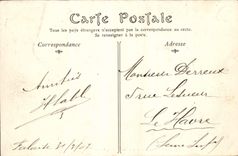 Carte Postale
Tous les pays étrangers n'acceptent pas la correspondance au recto.
Se renseigner à la poste.
Correspondance
Adresse
Amitiés
Monsieur Derreux
rue Lesueur
Le Havre